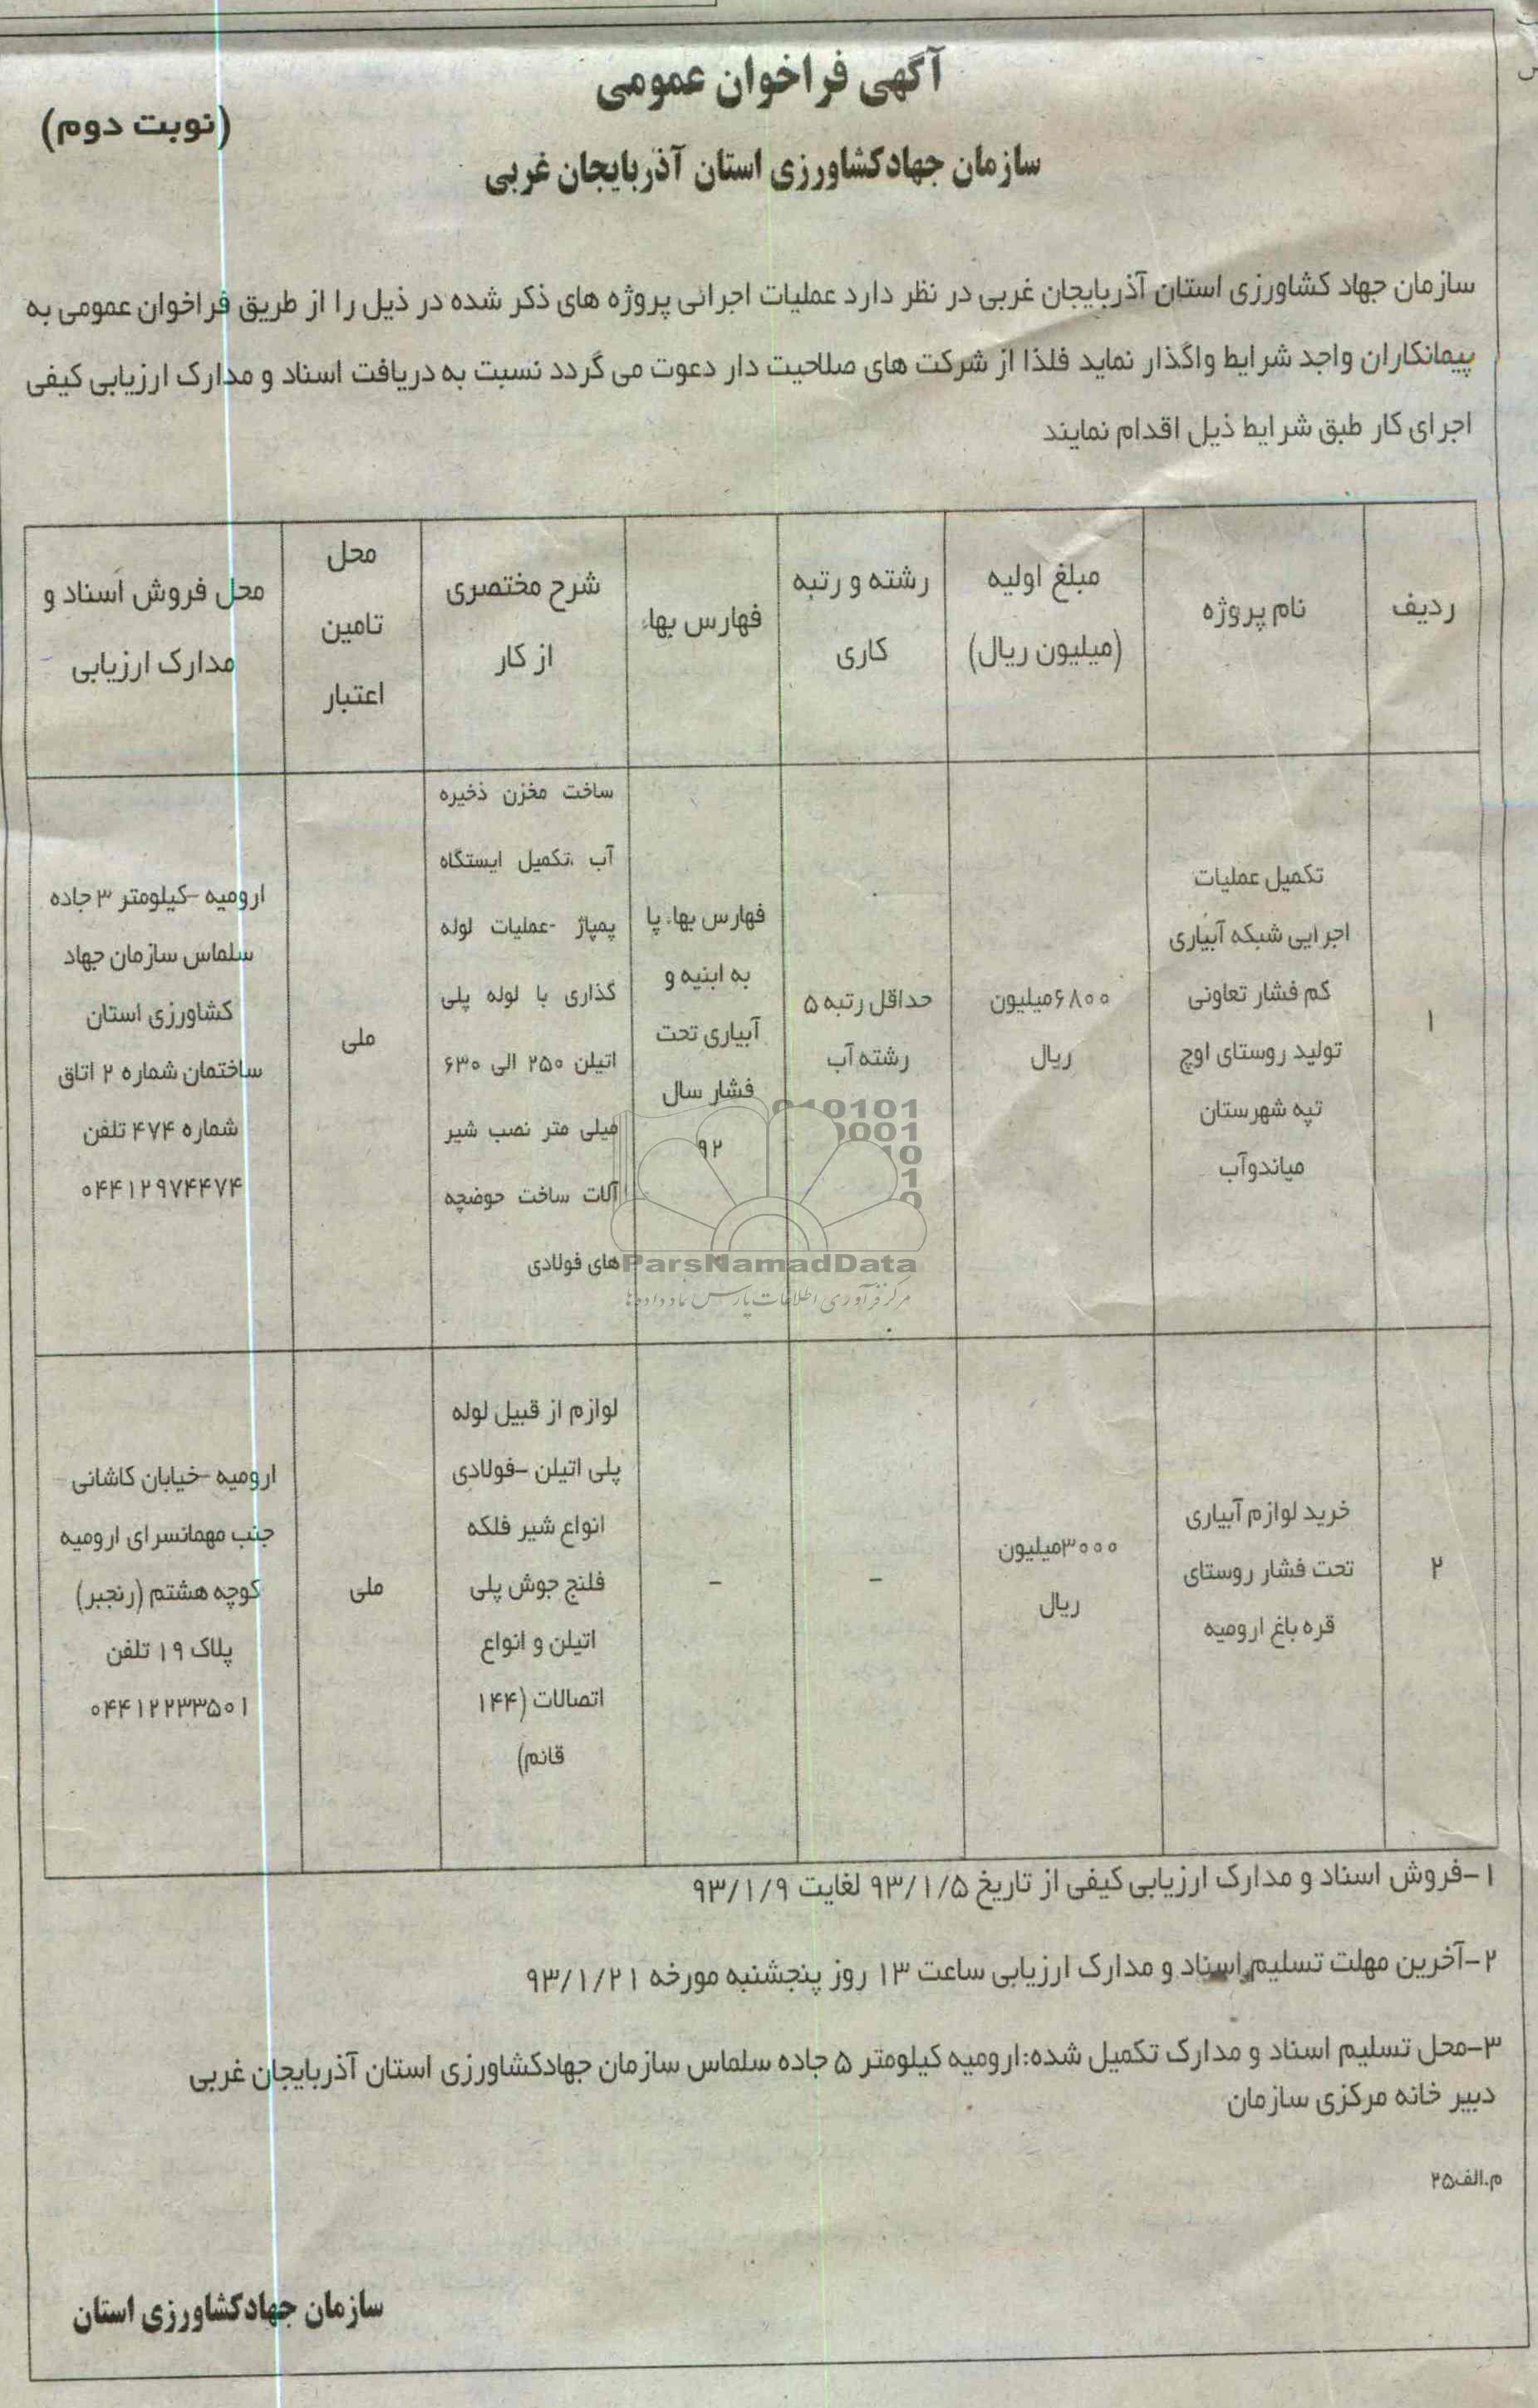 آگهی فراخوان عمومی
(نوبت دوم)
سازمان جهادکشاورزی استان آذربایجان غربی
سازمان جهاد کشاورزی استان آذربایجان غربی در نظر دارد عملیات اجرائی پروژه های ذکر شده در ذیل را از طریق فراخوان عمومی به
پیمانکاران واجد شرایط واگذار نماید فلذا از شرکت های صلاحیت دار دعوت می گردد نسبت به دریافت اسناد و مدارک ارزیابی کیفی
اجرای کار طبق شرایط ذیل اقدام نمایند
ردیف
نام پروژه
مبلغ اولیه
(میلیون ریال)
رشته و رتبه
کاری
فهارس بهاء
شرح مختصری
از کار
محل
تامین
اعتبار
محل فروش اسناد و
مدارک ارزیابی
۱
تکمیل عملیات
اجرایی شبکه آبیاری
کم فشار تعاونی
تولید روستای اوچ
تپه شهرستان
میاندوآب
۶۸۰۰میلیون
ریال
حداقل رتبه ۵
رشته آب
فهارس بهاء پا
به ابنیه و
آبیاری تحت
فشار سال
۹۲
ساخت مخزن ذخیره
آب ،تکمیل ایستگاه
پمپاژ -عملیات لوله
گذاری با لوله پلی
اتیلن ۲۵۰ الی ۶۳۰
میلی متر نصب شیر
آلات ساخت حوضچه
های فولادی
ملی
ارومیه -کیلومتر ۳ جاده
سلماس سازمان جهاد
کشاورزی استان
ساختمان شماره ۲ اتاق
شماره ۴۷۴ تلفن
۰۴۴۱۲۹۷۴۴۷۴
۲
خرید لوازم آبیاری
تحت فشار روستای
قره باغ ارومیه
۳۰۰۰میلیون
ریال
-
-
لوازم از قبیل لوله
پلی اتیلن -فولادی
انواع شیر فلکه
فلنج جوش پلی
اتیلن و انواع
اتصالات (۱۴۴
قائم)
ملی
ارومیه -خیابان کاشانی
جنب مهمانسرای ارومیه
کوچه هشتم (رنجبر)
پلاک ۱۹ تلفن
۰۴۴۱۲۲۳۳۵۰۱
۱-فروش اسناد و مدارک ارزیابی کیفی از تاریخ ۹۳/۱/۵ لغایت ۹۳/۱/۹
۲-آخرین مهلت تسلیم اسناد و مدارک ارزیابی ساعت ۱۳ روز پنجشنبه مورخه ۹۳/۱/۲۱
۳-محل تسلیم اسناد و مدارک تکمیل شده:ارومیه کیلومتر ۵ جاده سلماس سازمان جهادکشاورزی استان آذربایجان غربی
دبیر خانه مرکزی سازمان
م.الف۲۵
سازمان جهادکشاورزی استان
ParsNamadData
مرکز فرآوری اطلاعات پارس نماد داده‌ها